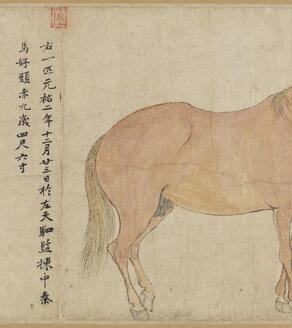 右一匹元祐二年十二月廿三日於左天駟監揀中秦
馬好頭赤九歲四尺六寸